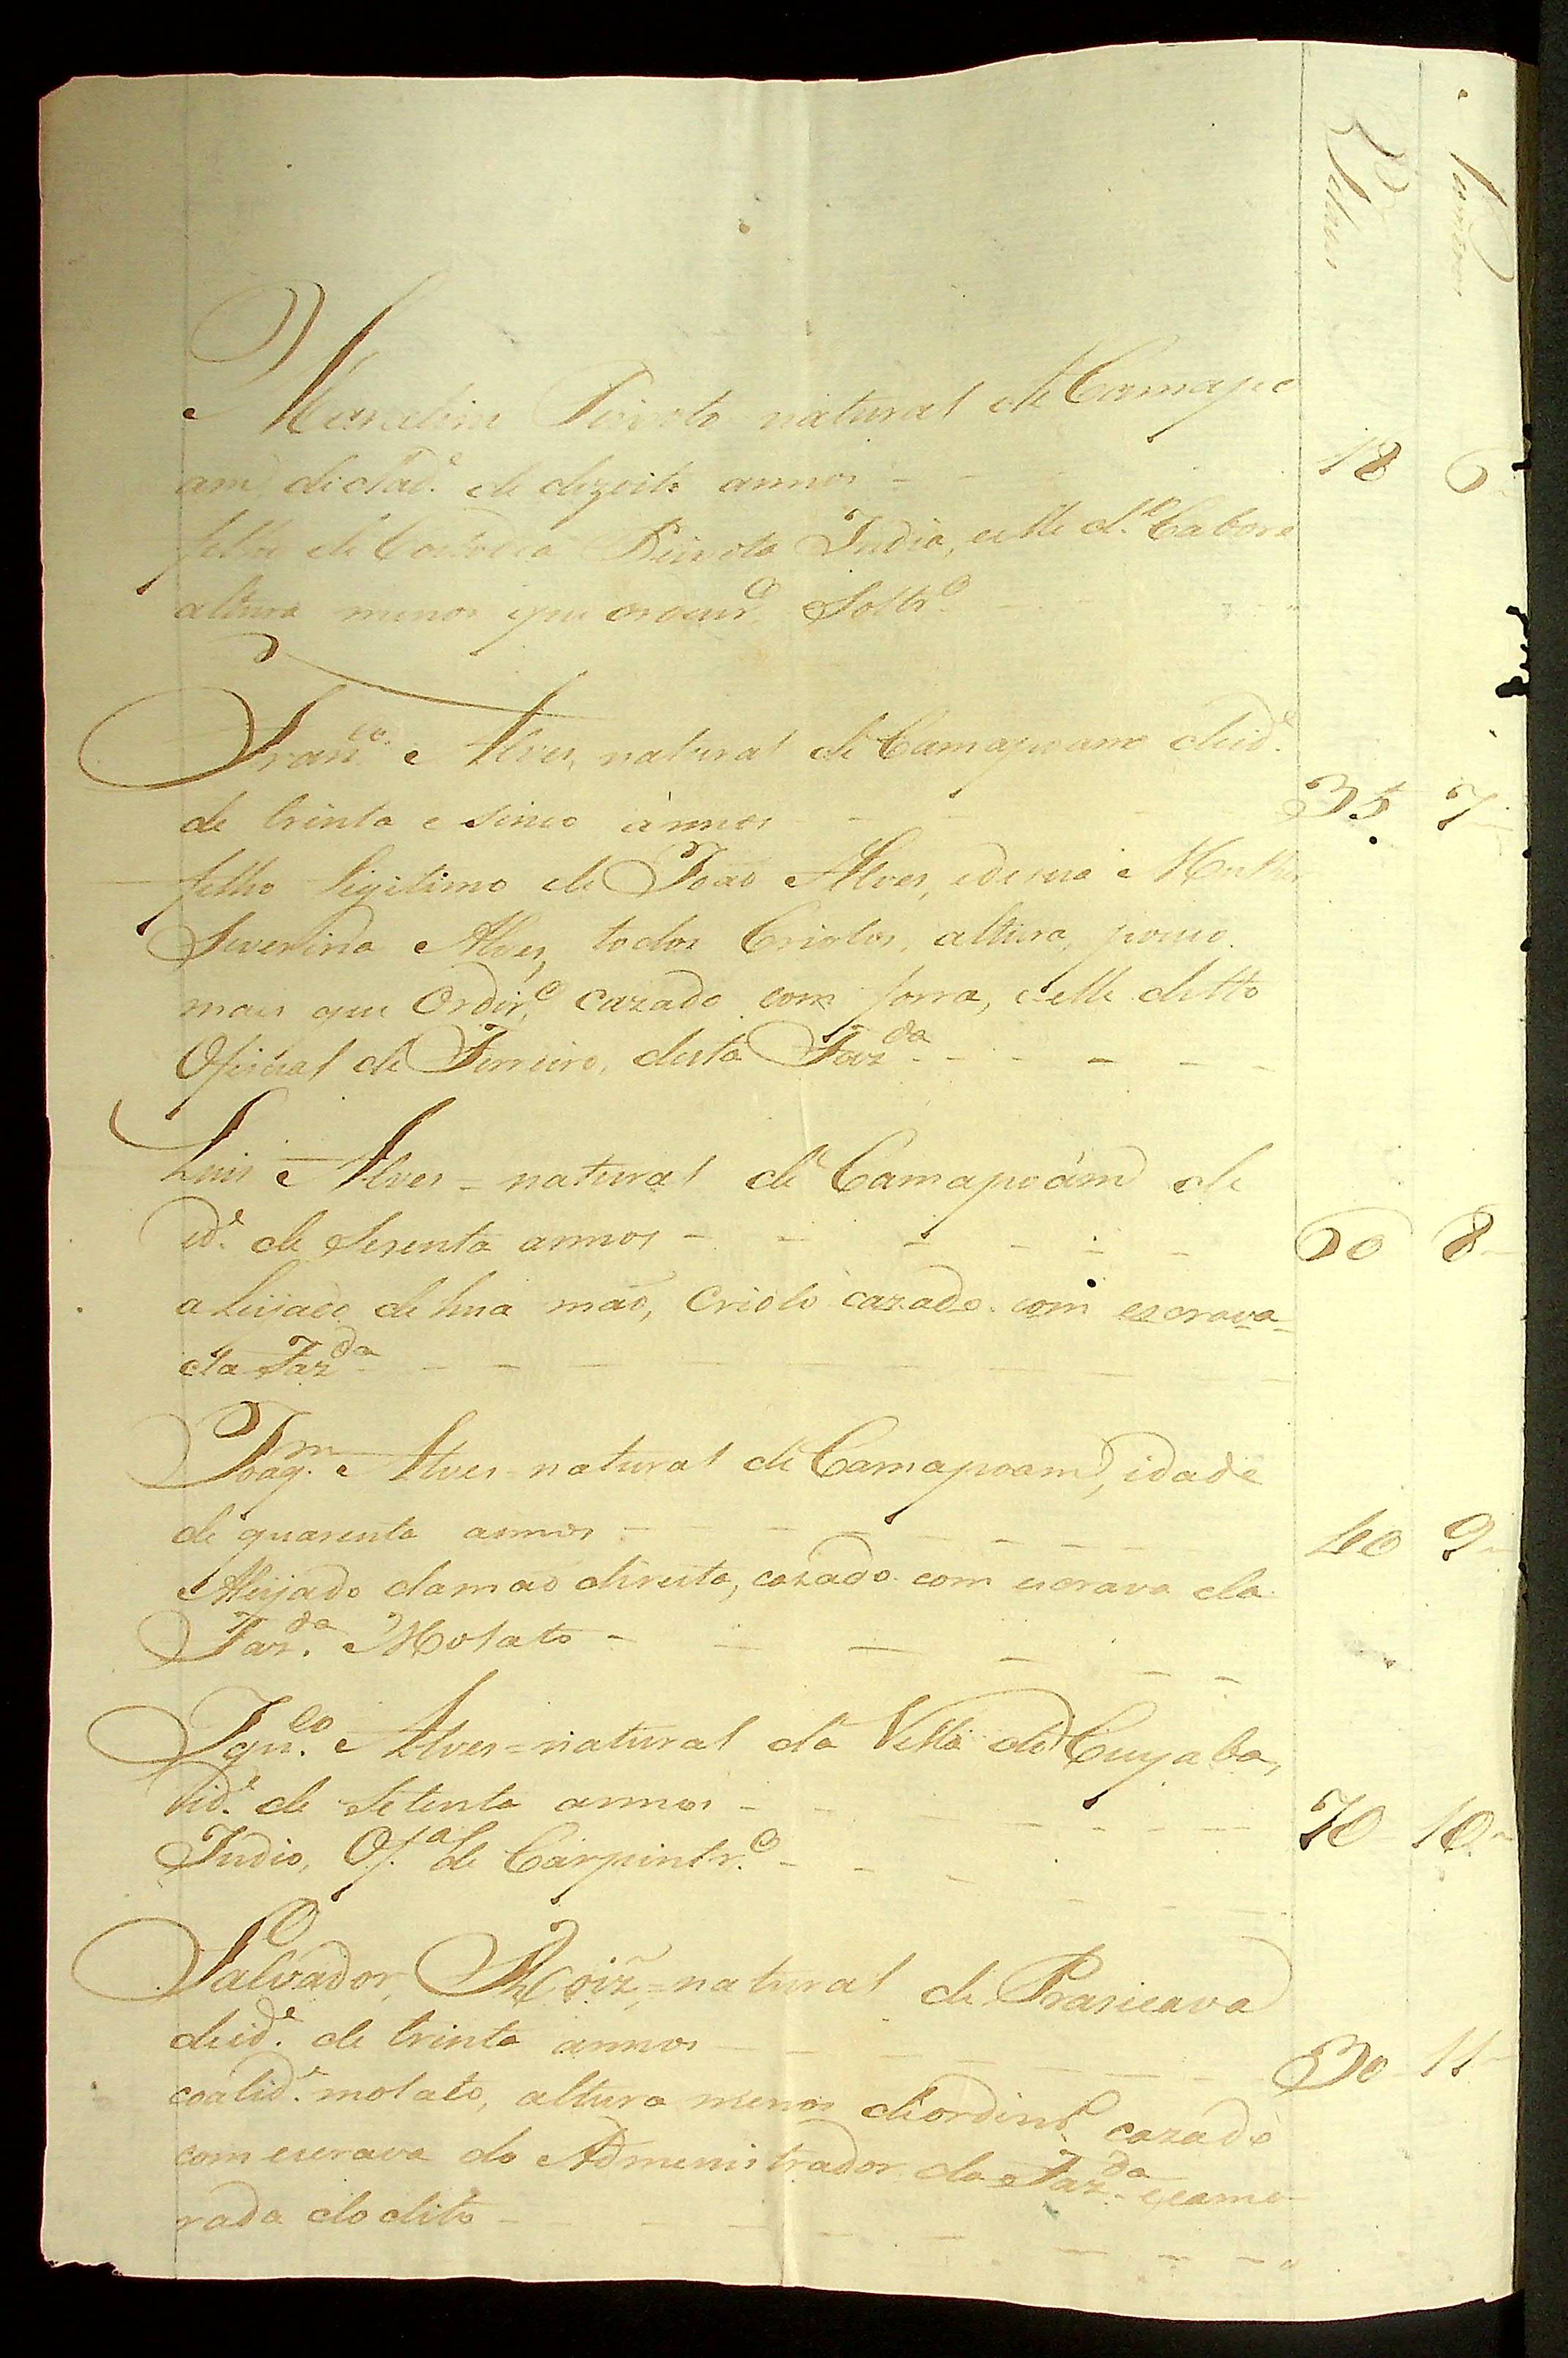 Idades Numeros
natural de Camapo
am, de idad.e de dezoito annos - 18 6
filho de Custodia India, e elle d.o Cabore
altura menos que ordin.o Soltr.o
Fran.co Alves, natural de Camapoam de id.e
de trinta e sinco annos - 35 7
filho legitimo de João Alves, e de sua Mulher
Severina Alves, todos Criolos, altura, pouco
mais que Ordir.o cazado com forra, e elle ditto
Oficial de Ferreiro, desta Faz.da - - - -
Luis Alves = natural de Camapoam de
id.e de Sesenta annos - - - - - 60 8
aleijado de hua mão, Criolo cazado com escrava
da Faz.da - - - -
Joaq.m Alves = natural de Camapoam, idade
de quarenta annos - - - - 40 9
Aleijado da mão direita, cazado com escrava da
Faz.da Molato - - - - - -
Ign.co Alves = natural da Villa de Cuyaba,
id.e de Setenta annos - - - - - 70 10
Indio, Of.al de Carpintr.o - - - -
Salvador Roiz = natural de Prasicava
de id.e de trinta annos - - - - 30 11
coalid.e molato, altura menos de ordinr.o cazado
com escrava do Admenistrador da Faz.da e cama-
rada do dito - - - - - -